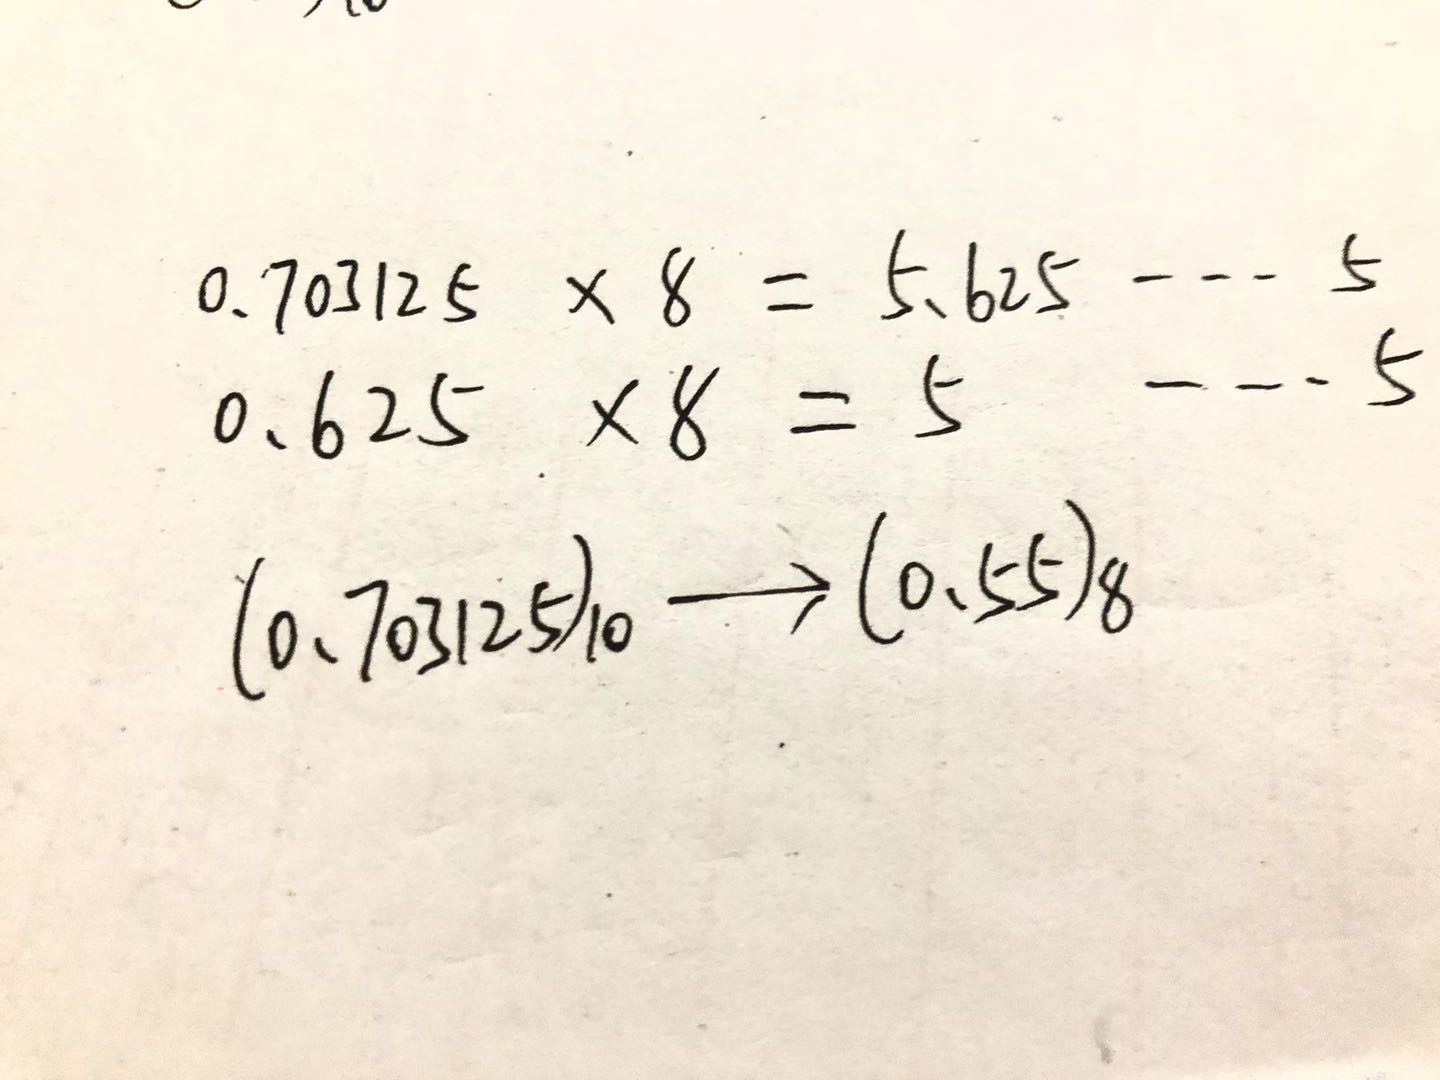 0.703125 × 8 = 5.625 --- 5
0.625 × 8 = 5 --- 5
(0.703125)10 → (0.55)8